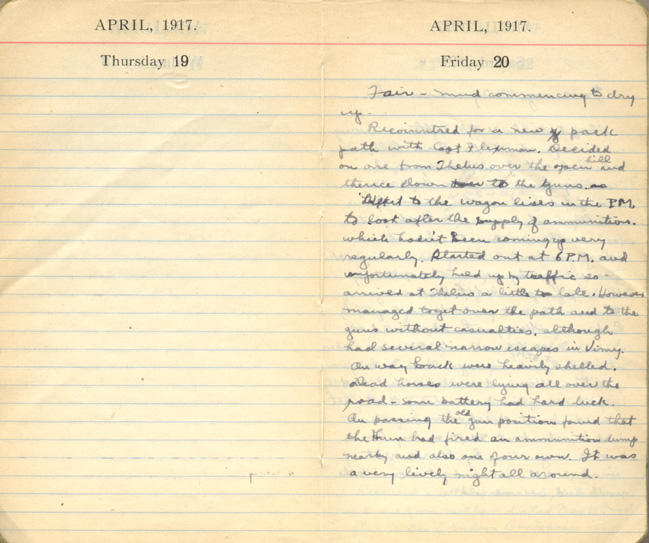 APRIL, 1917.
Thursday 19
APRIL, 1917.
Friday 20
Fair – mud commencing to dry
up.
Reconnitred for a new pack
path with Capt Plexman. Decided
on one from Thelus over the open hill and
thence down to the guns.
Went to the wagon lines in the P.M.
to look after the supply of ammunition.
which hadn't been coming up very
regularly. Started out at 6 P.M. and
unfortunately held up by traffic so
arrived at Thelus a little too late. However
managed to get over the path and to the
guns without casualties, although
had several narrow escapes in Vimy.
On way back were heavily shelled.
Dead horses were lying all over the
road – some battery had hard luck.
On passing the old gun positions found that
the Hun had fired an ammunition dump
nearby and also one of our own. It was
a very lively night all around.